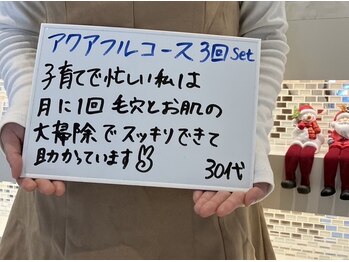 アクアフルコース3回set
子育てで忙しい私は
月に1回 毛穴とお肌の
大掃除でスッキリできて
助かっています
30代